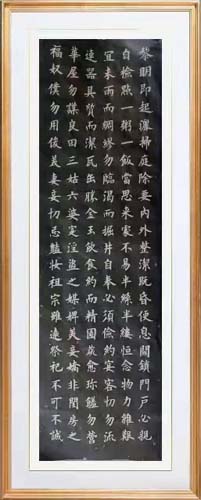 黎明即起灑掃庭除要內外整潔既昏便息關鎖門戶必親
自檢點一粥一飯當思來處不易半絲半縷恒念物力維艱
宜未雨而綢繆勿臨渴而掘井自奉必須儉約宴客切勿流
連器具質而潔瓦缶勝金玉飲食約而精園蔬愈珍饈勿營
華屋勿謀良田三姑六婆實淫盜之媒婢美妾嬌非閨房之
福奴僕勿用俊美妻妾切忌艷妝祖宗雖遠祭祀不可不誠